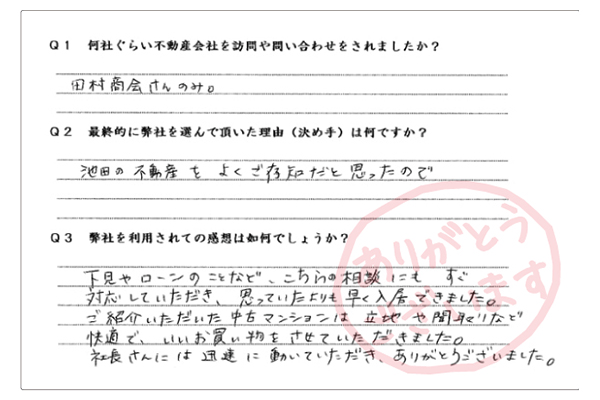 Q1 何社ぐらい不動産会社を訪問や問い合わせをされましたか？
田村商会さんのみ。
Q2 最終的に弊社を選んで頂いた理由（決め手）は何ですか？
池田の不動産をよくご存知だと思ったので
Q3 弊社を利用されての感想は如何でしょうか？
下見やローンのことなど、こちらの相談にもすぐ
対応していただき、思っていたよりも早く入居できました。
ご紹介いただいた中古マンションは立地や間取りなど
快適で、いいお買い物をさせていただきました。
社長さんには迅速に動いていただき、ありがとうございました。
ありがとう
ございます